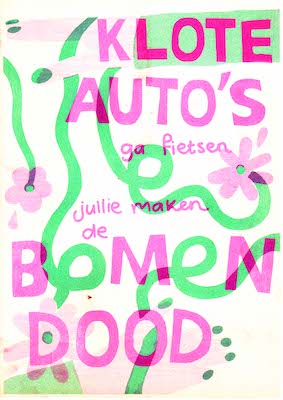 KLOTE
AUTO'S
ga fietsen
jullie maken
de
BOMEN
DOOD